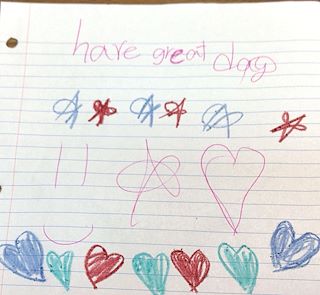 have great day